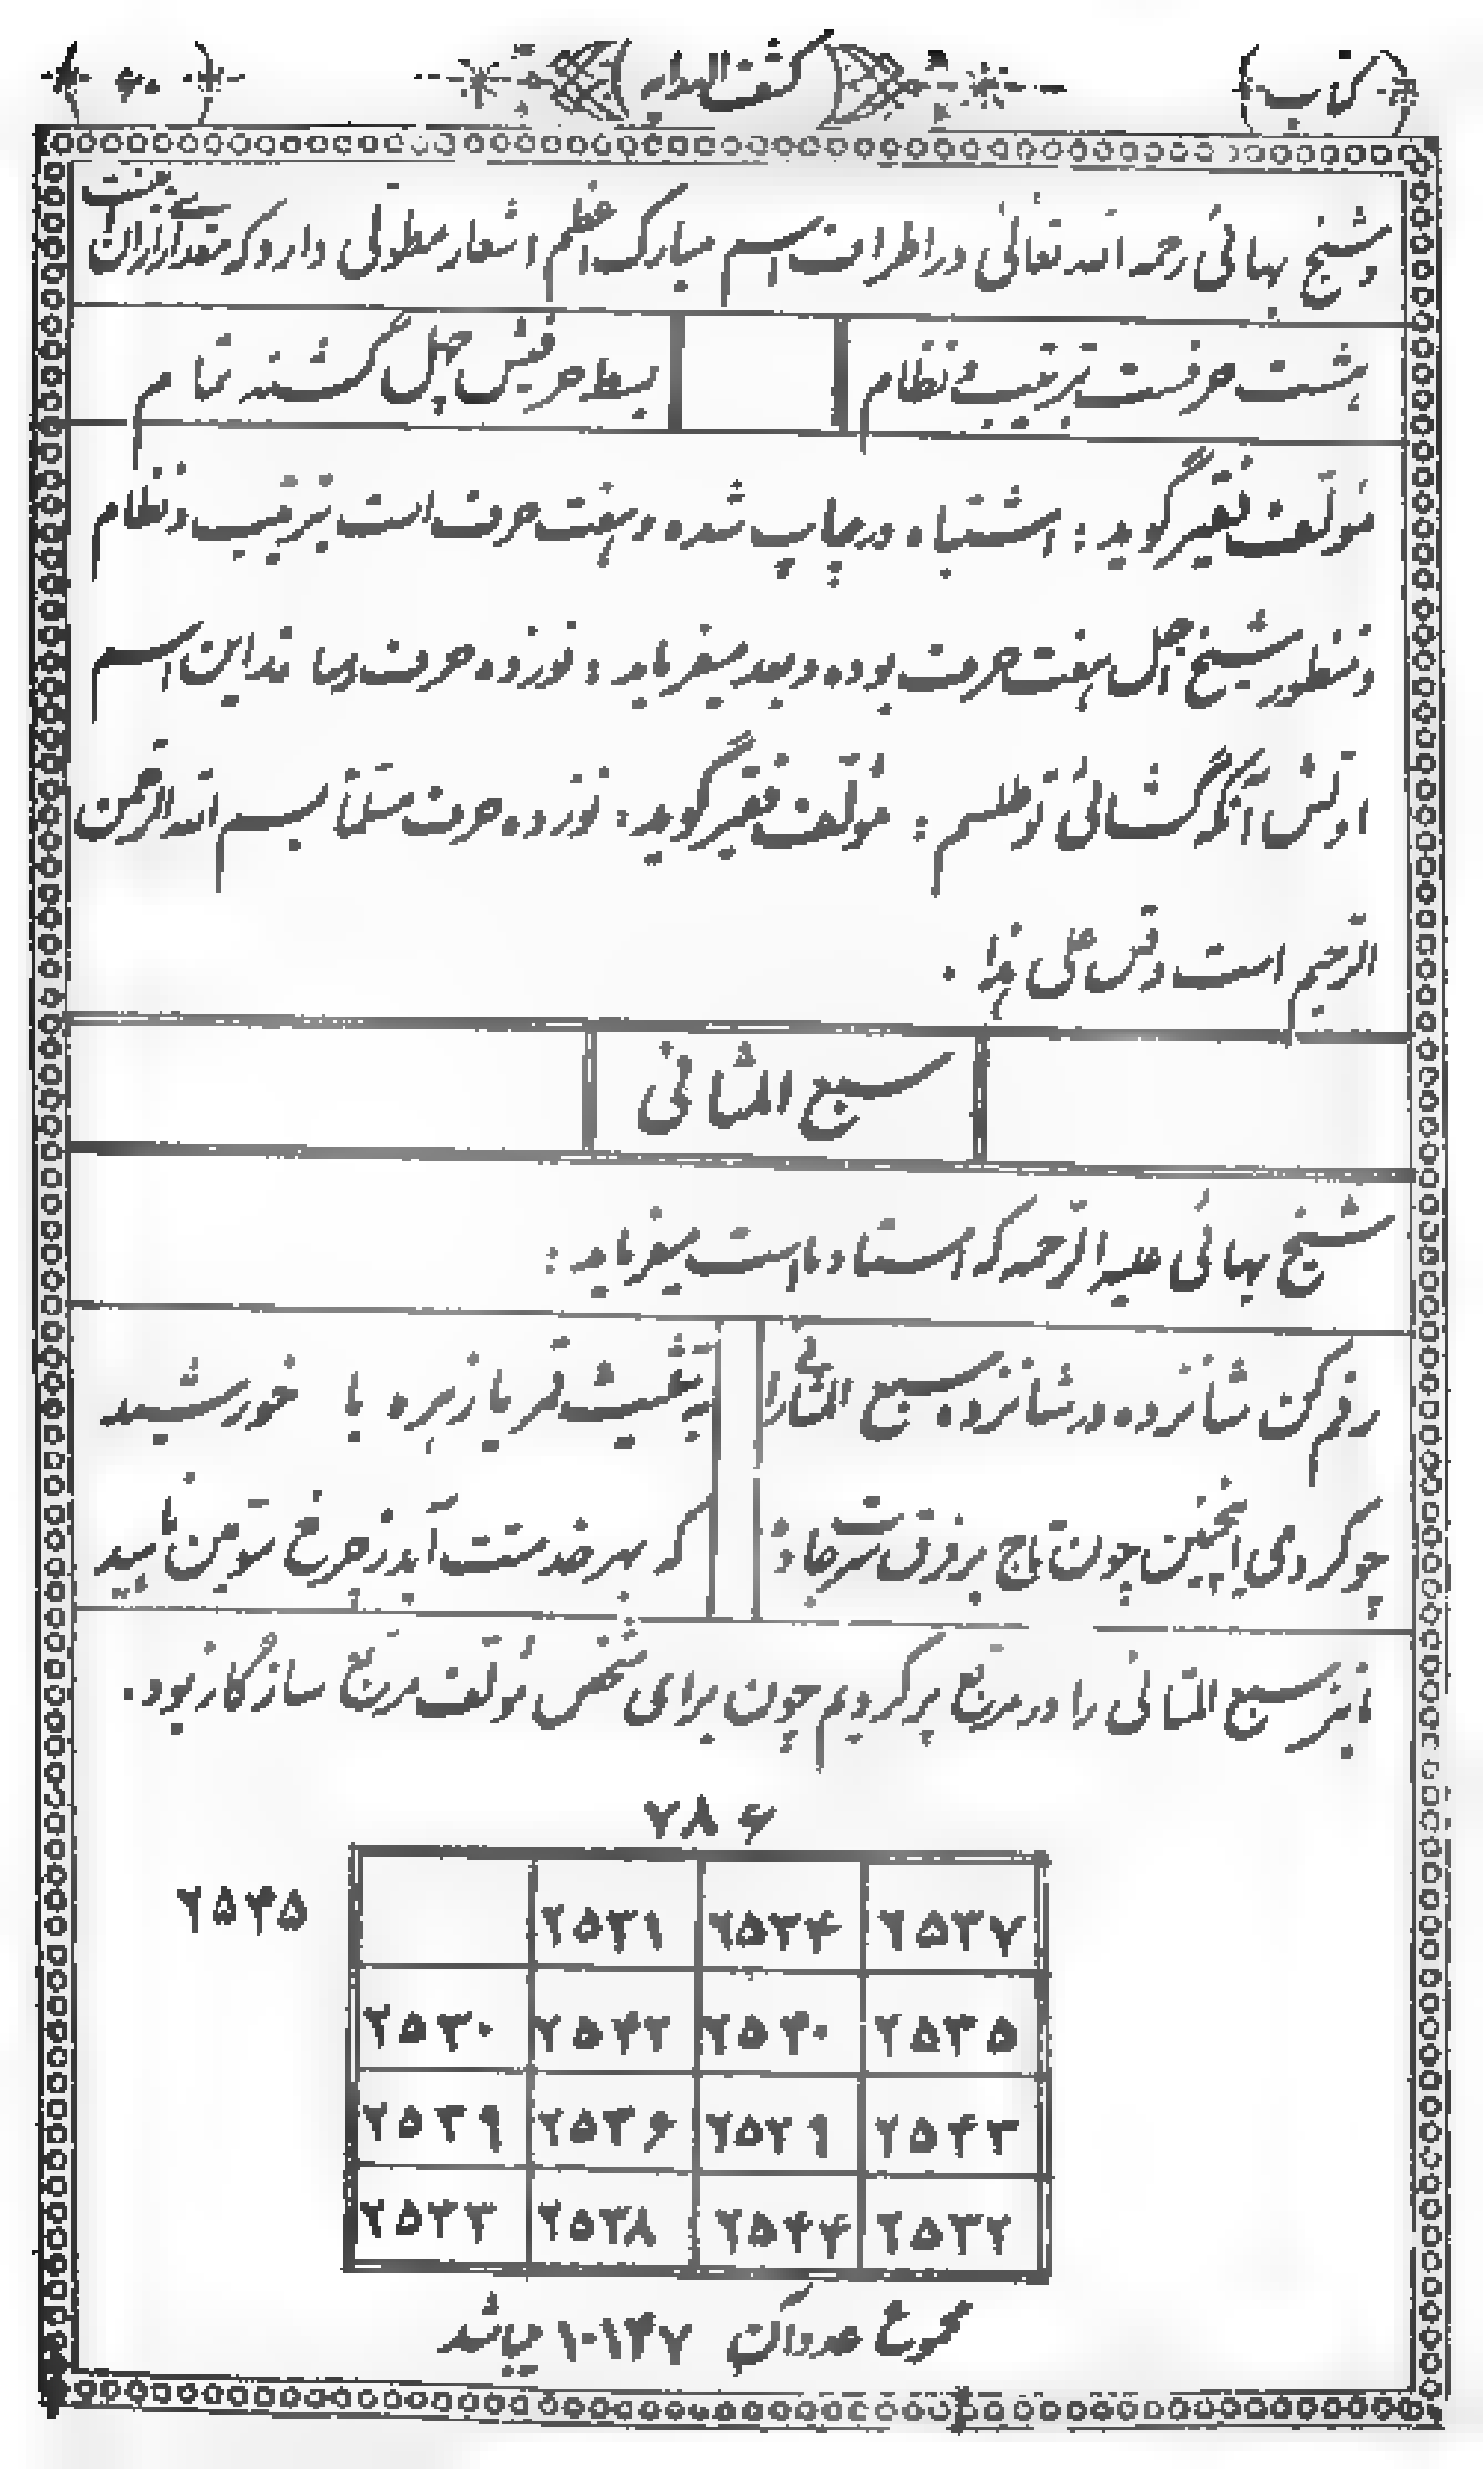 کتاب کشف الهدایه ۶۰
و شیخ بهائی رحمه الله تعالی در اطراف اسم مبارک اعظم اشعار مطولی دارد که مقداری از آن اینست
هشت حرفست بترتیب و نظام بسط حرفیش چهل گشته تمام
مؤلف فقیر گوید : اشتباه در چاپ شده و هفت حرف است بترتیب و نظام
و منظور شیخ اجل هفت حرف بوده و بعد میفرماید : نوزده حرف بماند این اسم
اولش آنکه گشائی تو طلسم : مؤلف فقیر گوید : نوزده حرف بسم الله الرحمن
الرحیم است و قس علی هذا .
سبع المثانی
شیخ بهائی علیه الرحمه که استاد ما است میفرماید :
رقم کن شانزده در شانزده سبع المثانی را به تثلیث قمر یا زهره با خورشید
چو کردی اینچنین چون تاج بر فرق سرت جا ده که بهر خدمتت آید ز چرخ سومین ناهید
ما نیز سبع المثانی را در مربع پر کردیم چون برای شخص مؤلف مربع سازگار نبود .
۷۸۶
۲۵۳۷ ۲۵۳۴ ۲۵۳۱ ۲۵۴۵
۲۵۳۵ ۲۵۴۰ ۲۵۴۲ ۲۵۳۰
۲۵۴۳ ۲۵۲۹ ۲۵۳۶ ۲۵۳۹
۲۵۳۲ ۲۵۴۴ ۲۵۳۸ ۲۵۳۳
مجموع عدد آن ۱۰۱۴۷ میباشد